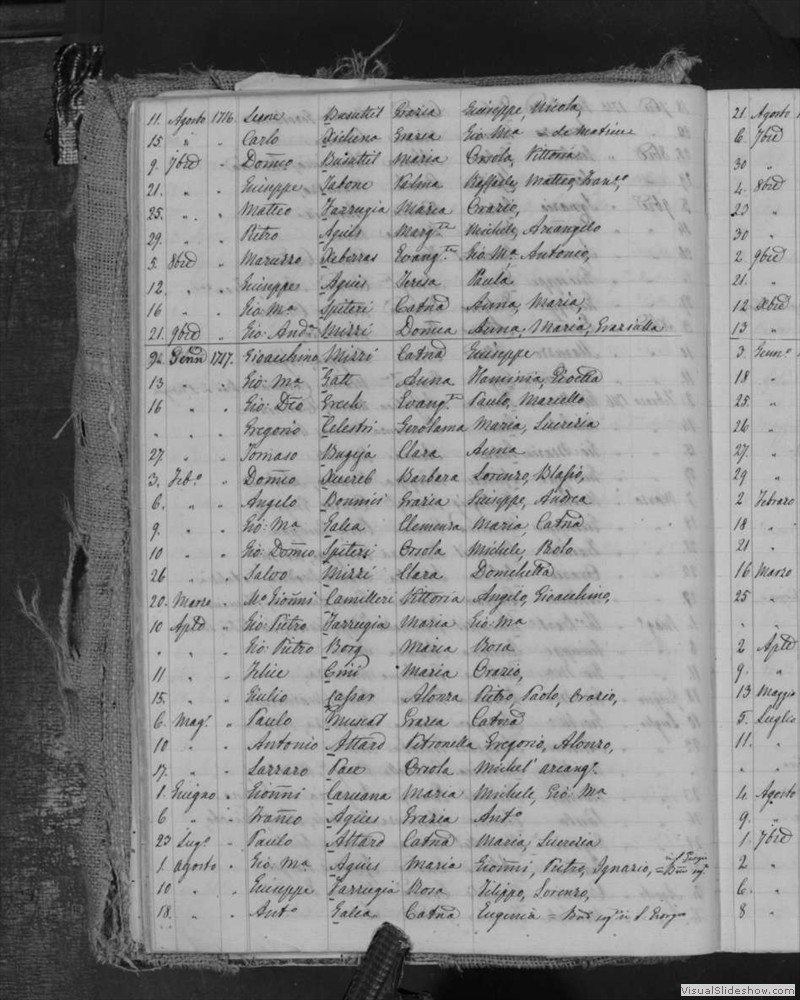 11. Agosto 1716. Leone Busuttil Grazia Giuseppe, Nicola,
15. " " Carlo Xicluna Grazia Gio Ma
9. 7bre " Domco Busuttil Maria Orsola, Vittoria
21. " " Giuseppe Zabone Palma Raffaele, Matteo, Franco
25. " " Matteo Farrugia Maria Orazio,
29. " " Pietro Agius Margta Michele, Arcangelo
5. 8bre " Maruzzo Xeberras Evangta Gio Ma Antonio,
12. " " Giuseppe Agius Teresa Paula
16 " " Gio: Ma Spiteri Catna Anna, Maria,
21. 9bre " Gio: Anda Mizzi Domca Anna, Maria, Graziulla
Genn 1717. Gioacchino Mizzi Catna Giuseppe
13 " " Gio: Ma Gatt Anna Flaminia,
16 " " Gio: Dco Grech Evangta Paulo, Mariello
" " " Gregorio Celestri Gerolama Maria, Lucrezia
27. " " Tomaso Bugeja Clara Anna
3. Febo " Domco Xuereb Barbara Lorenzo, Blasio,
6. " " Angelo Bonnici Grazia Giuseppe, Andrea
9. " " Gio: Ma Galea Clemenza Maria, Catna
10 " " Gio: Domco Spiteri Orsola Michele, Polo
26 " " Salvo Mizzi Clara Domchetta
20. Marzo " Mo Gionni Camilleri Vittoria Angelo, Gioacchino,
10 Aple " Gio: Pietro Farrugia Maria Gio: Ma
" " " Gio: Pietro Borg Maria Rosa
11 " " Felice Maria Orazio,
15. " " Giulio Cassar Alonza Pietro, Paolo, Orazio,
6. Mago " Paulo Muscat Grazia Catna
10 " " Antonio Attard Petronella Gregorio, Alonzo,
17. " " Lazzaro Pace Orsola Michel' arcango
1. Giugno " Gionni Caruana Maria Michele, Gio: Ma
6 " " Franco Agius Grazia Anto
23 Lugo " Paulo Attard Catna Maria, Lucrezia
1. agosto " Gio: Ma Agius Maria Gionni, Pietro, Ignazio,
10 " " Giuseppe Farrugia Rosa Filippo, Lorenzo,
18. " " Anto Galea Catna Eugenia
21. Agosto
6. 7bre
30 "
4. 8bre
23 "
30 "
2. 9bre
21. "
12 Xbre
13 "
3. Genno
18 "
25 "
26 "
27. "
29 "
2 Febraro
18 "
21 "
16 Marzo
25 "
"
2 Aple
9. "
13 Maggio
5. Luglio
11. "
" "
4. Agosto
9. "
1. 7bre
2 "
6. "
8 "
VisualSlideshow.com